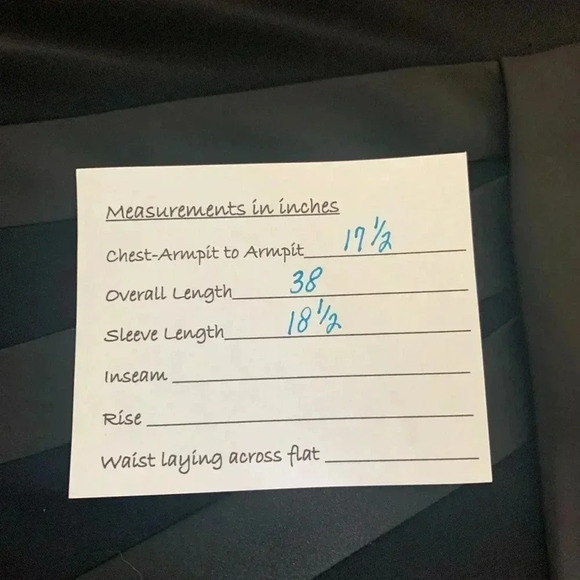 Measurements in inches
Chest-Armpit to Armpit 17 1/2
Overall Length 38
Sleeve Length 18 1/2
Inseam
Rise
Waist laying across flat